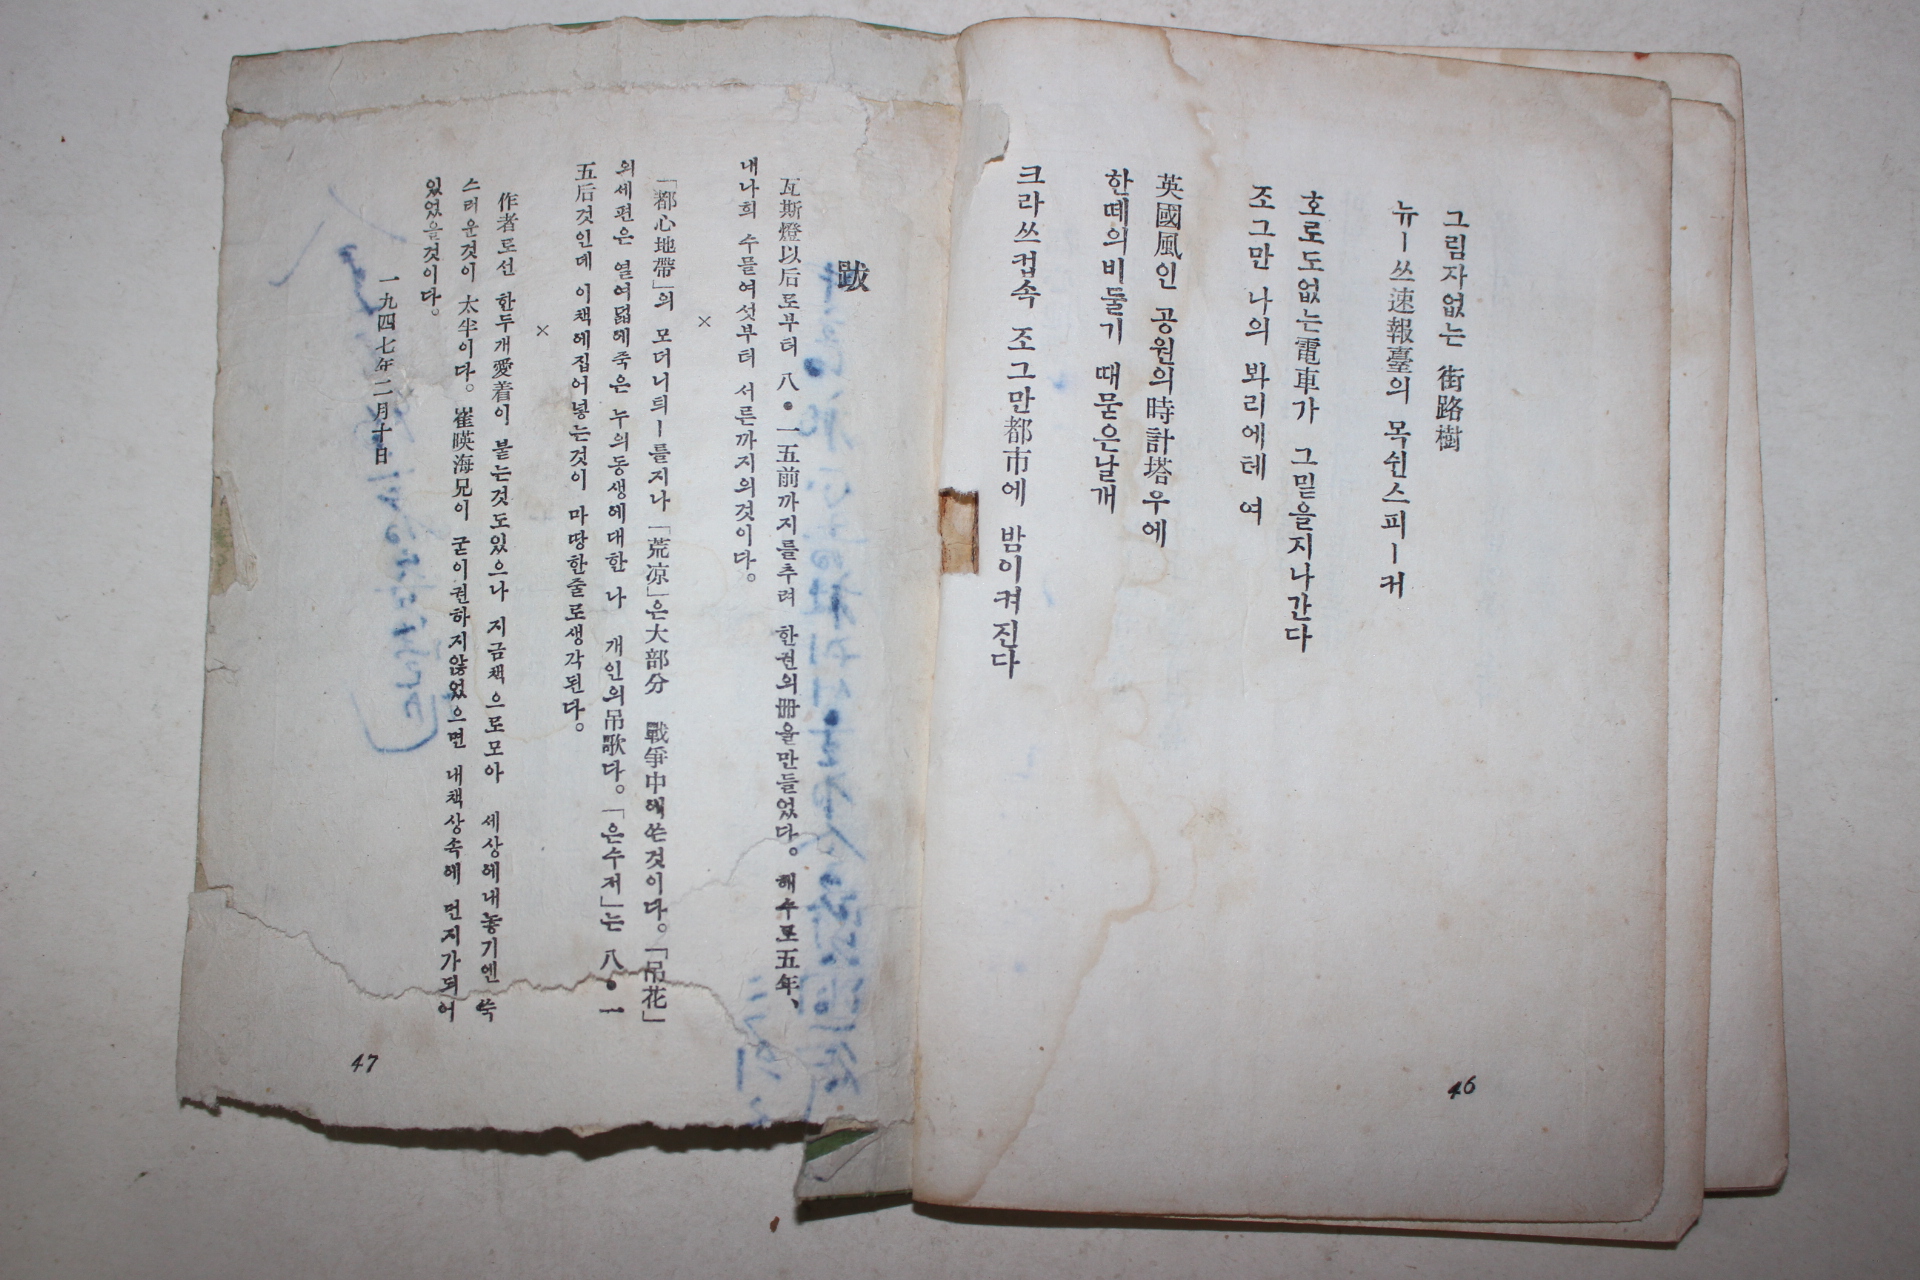 그림자없는 街路樹
뉴ー쓰速報臺의 목쉰스피ー커
호로도없는電車가 그밑을지나간다
조그만 나의 봐리에테 여
英國風인 공원의時計塔우에
한떼의비둘기 때묻은날개
크라쓰컵속 조그만都市에 밤이켜진다
46
跋
瓦斯燈以后로부터 八•一五前까지를추려 한권의冊을만들었다。해수로五年、
내나희 수믈여섯부터 서른까지의것이다。
×
「都心地帶」의 모더니틔ー를지나「荒凉」은大部分 戰爭中에쓴것이다。「吊花」
의세편은 열여덟에죽은 누의동생에대한 나 개인의吊歌다。「은수저」는 八•一
五后것인데 이책에집어넣는것이 마땅한줄로생각된다。
×
作者로선 한두개愛着이 붙는것도있으나 지금책으로모아 세상에내놓기엔 쑥
스러운것이 太半이다。崔暎海兄이 굳이권하지않었으면 내책상속에 먼지가되어
있었을것이다。
一九四七年二月十日
47